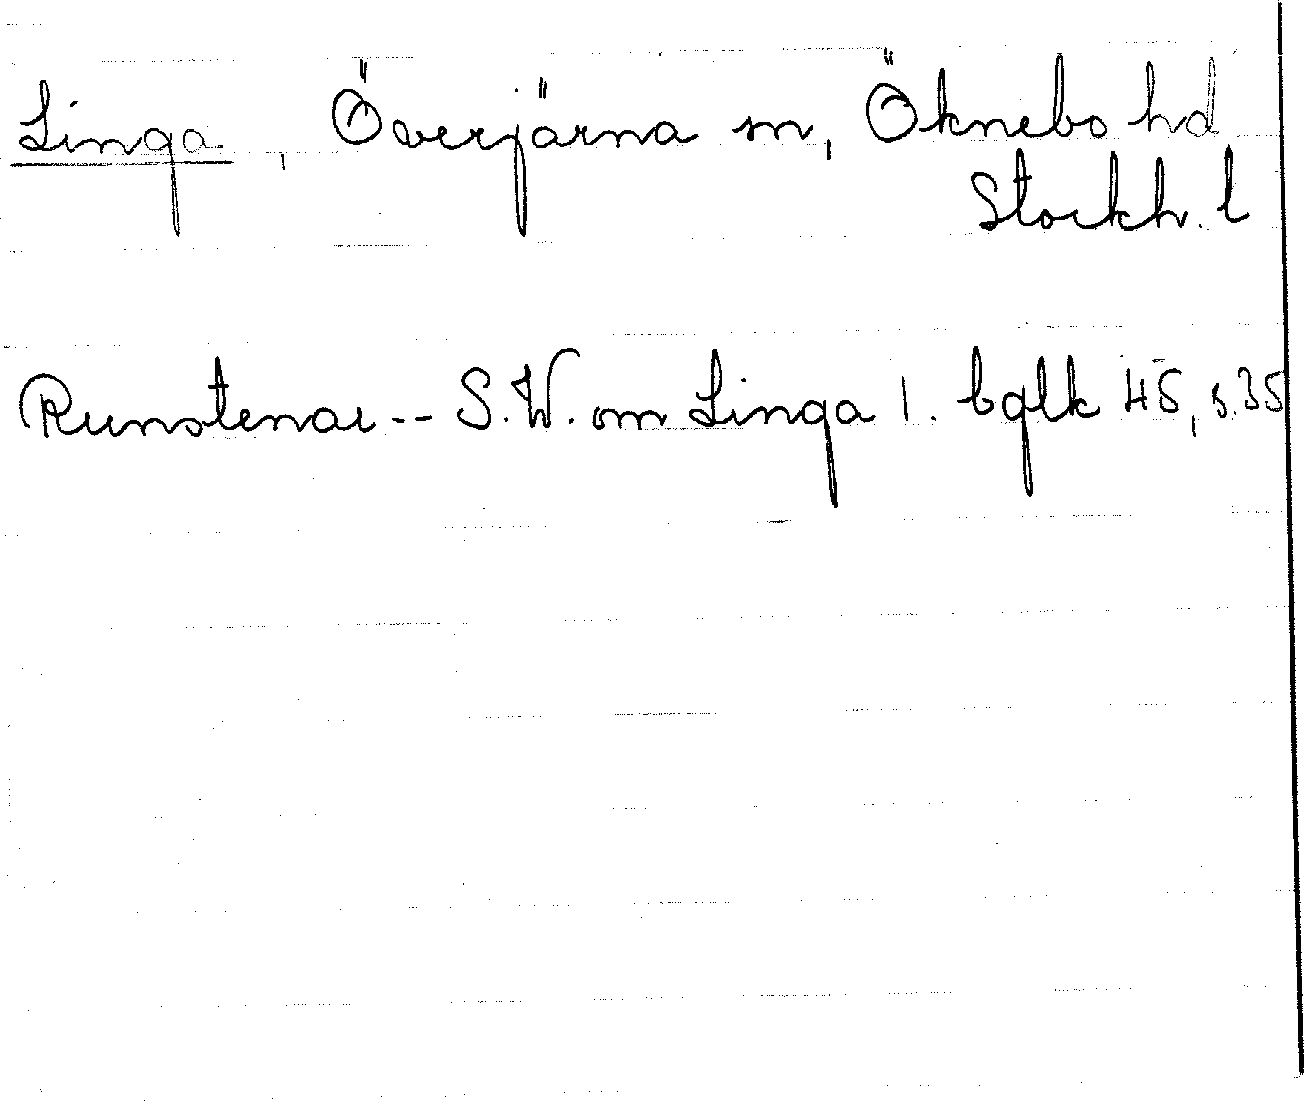 Linga, Överjärna sn, Öknebo hd
Stockh. l
Runstenar -- S.W. om Linga 1. bglk 45, s.35